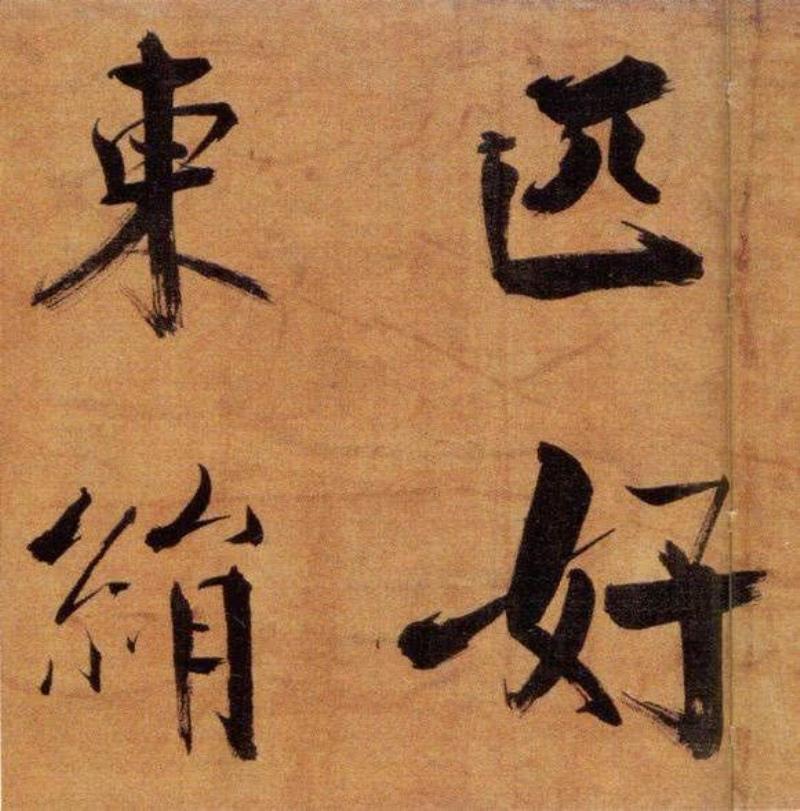 匹好
東絹